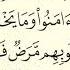 ءَامَنُوا۟ وَمَا يَخْ
وبِهِم مَّرَضٌ فَ